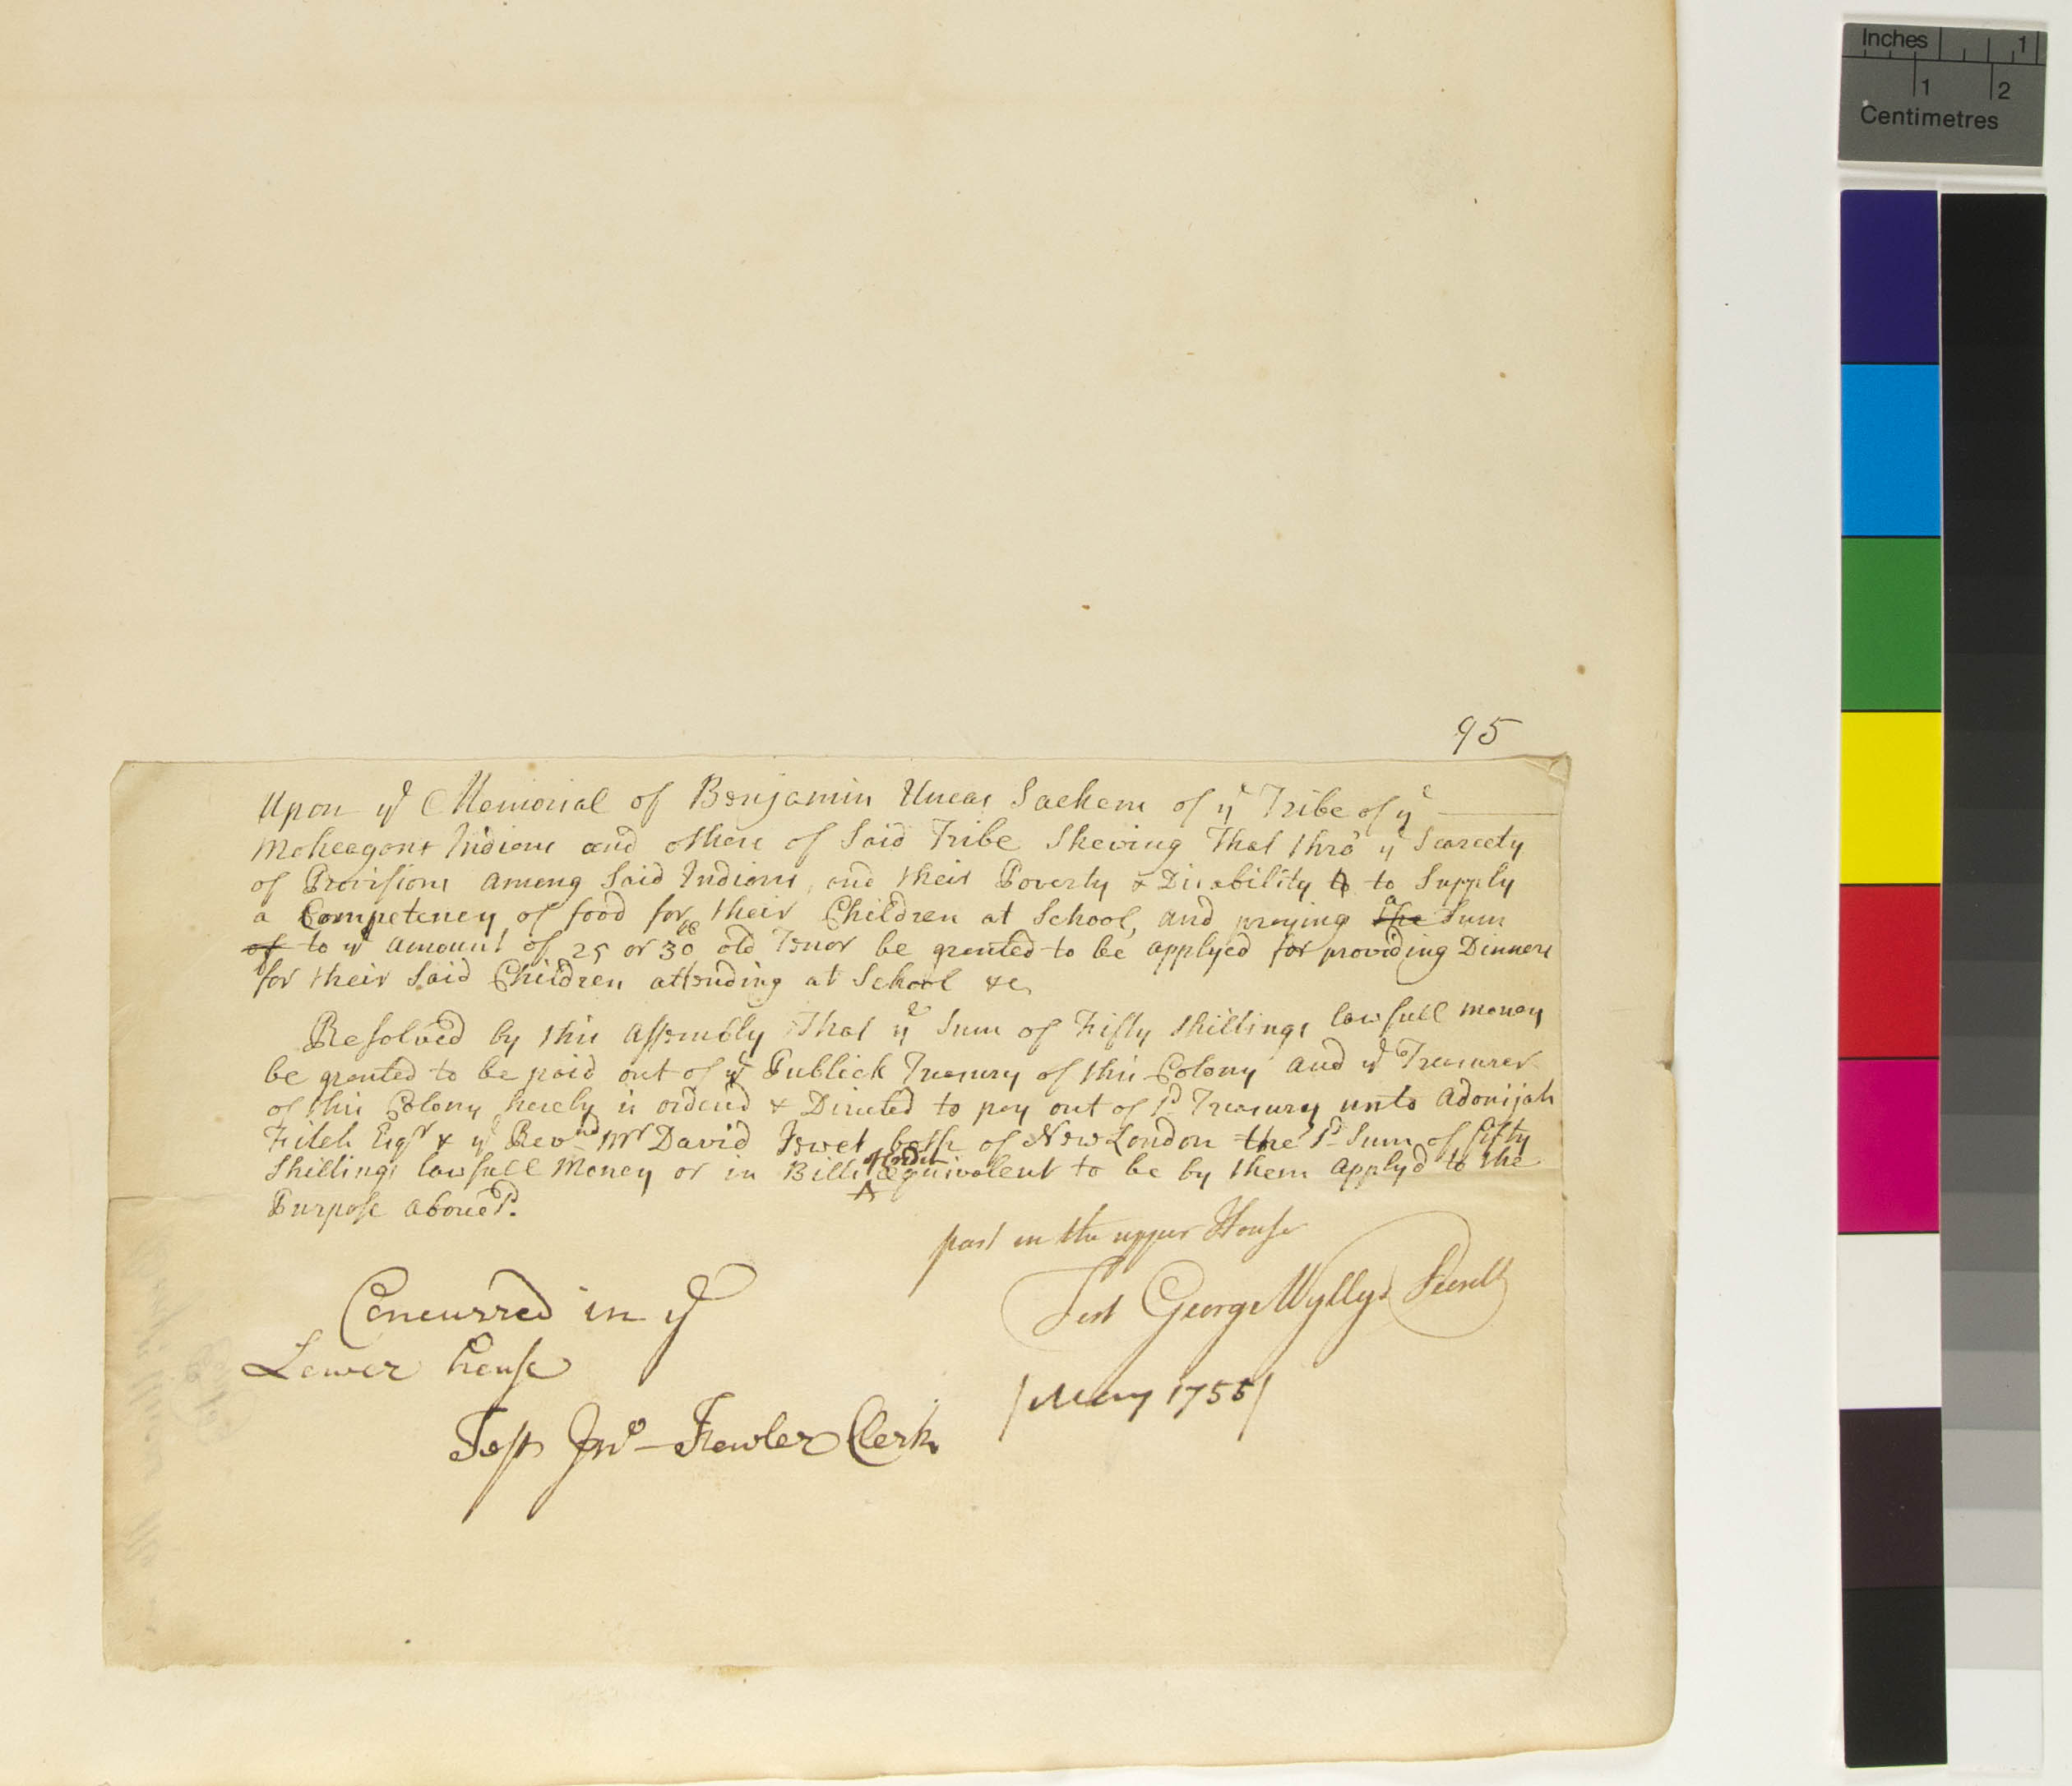 Inches 1
1 2
Centimetres
95
Upon yᵉ Memorial of Benjamin Uncas Sachem of yᵉ Tribe of yᵉ
Moheagons Indians and others of Said Tribe Shewing That thro' yᵉ Scarcety
of Provisions among Said Indians, and their Poverty & Disability to to Supply
a Competency of food for their Children at School, and praying the a Sum
of to yᵉ amount of 25 or 30£ old Tenor be granted to be applyed for providing Dinners
for their Said Children attending at School &c.
Resolved by this Assembly That yᵉ Sum of Fifty Shillings lawfull money
be granted to be paid out of yᵉ Publick Treasury of this Colony and yᵉ Treasurer
of this Colony hereby is orderd & Directed to pay out of sᵈ Treasury unto Adonijah
Fitch Esqʳ & yᵉ Revⁿᵈ Mʳ David Jewet both of New London the sᵈ Sum of fifty
Shillings lawfull Money or in Bills of Credit equivalent to be by them applyd to the
Purpose abovesᵈ.
past in the upper House
Test George Wyllys Secretʸ
Concurred in yᵉ
Lower house
Test Jnᵒ Fowler Clerk
/May 1755/